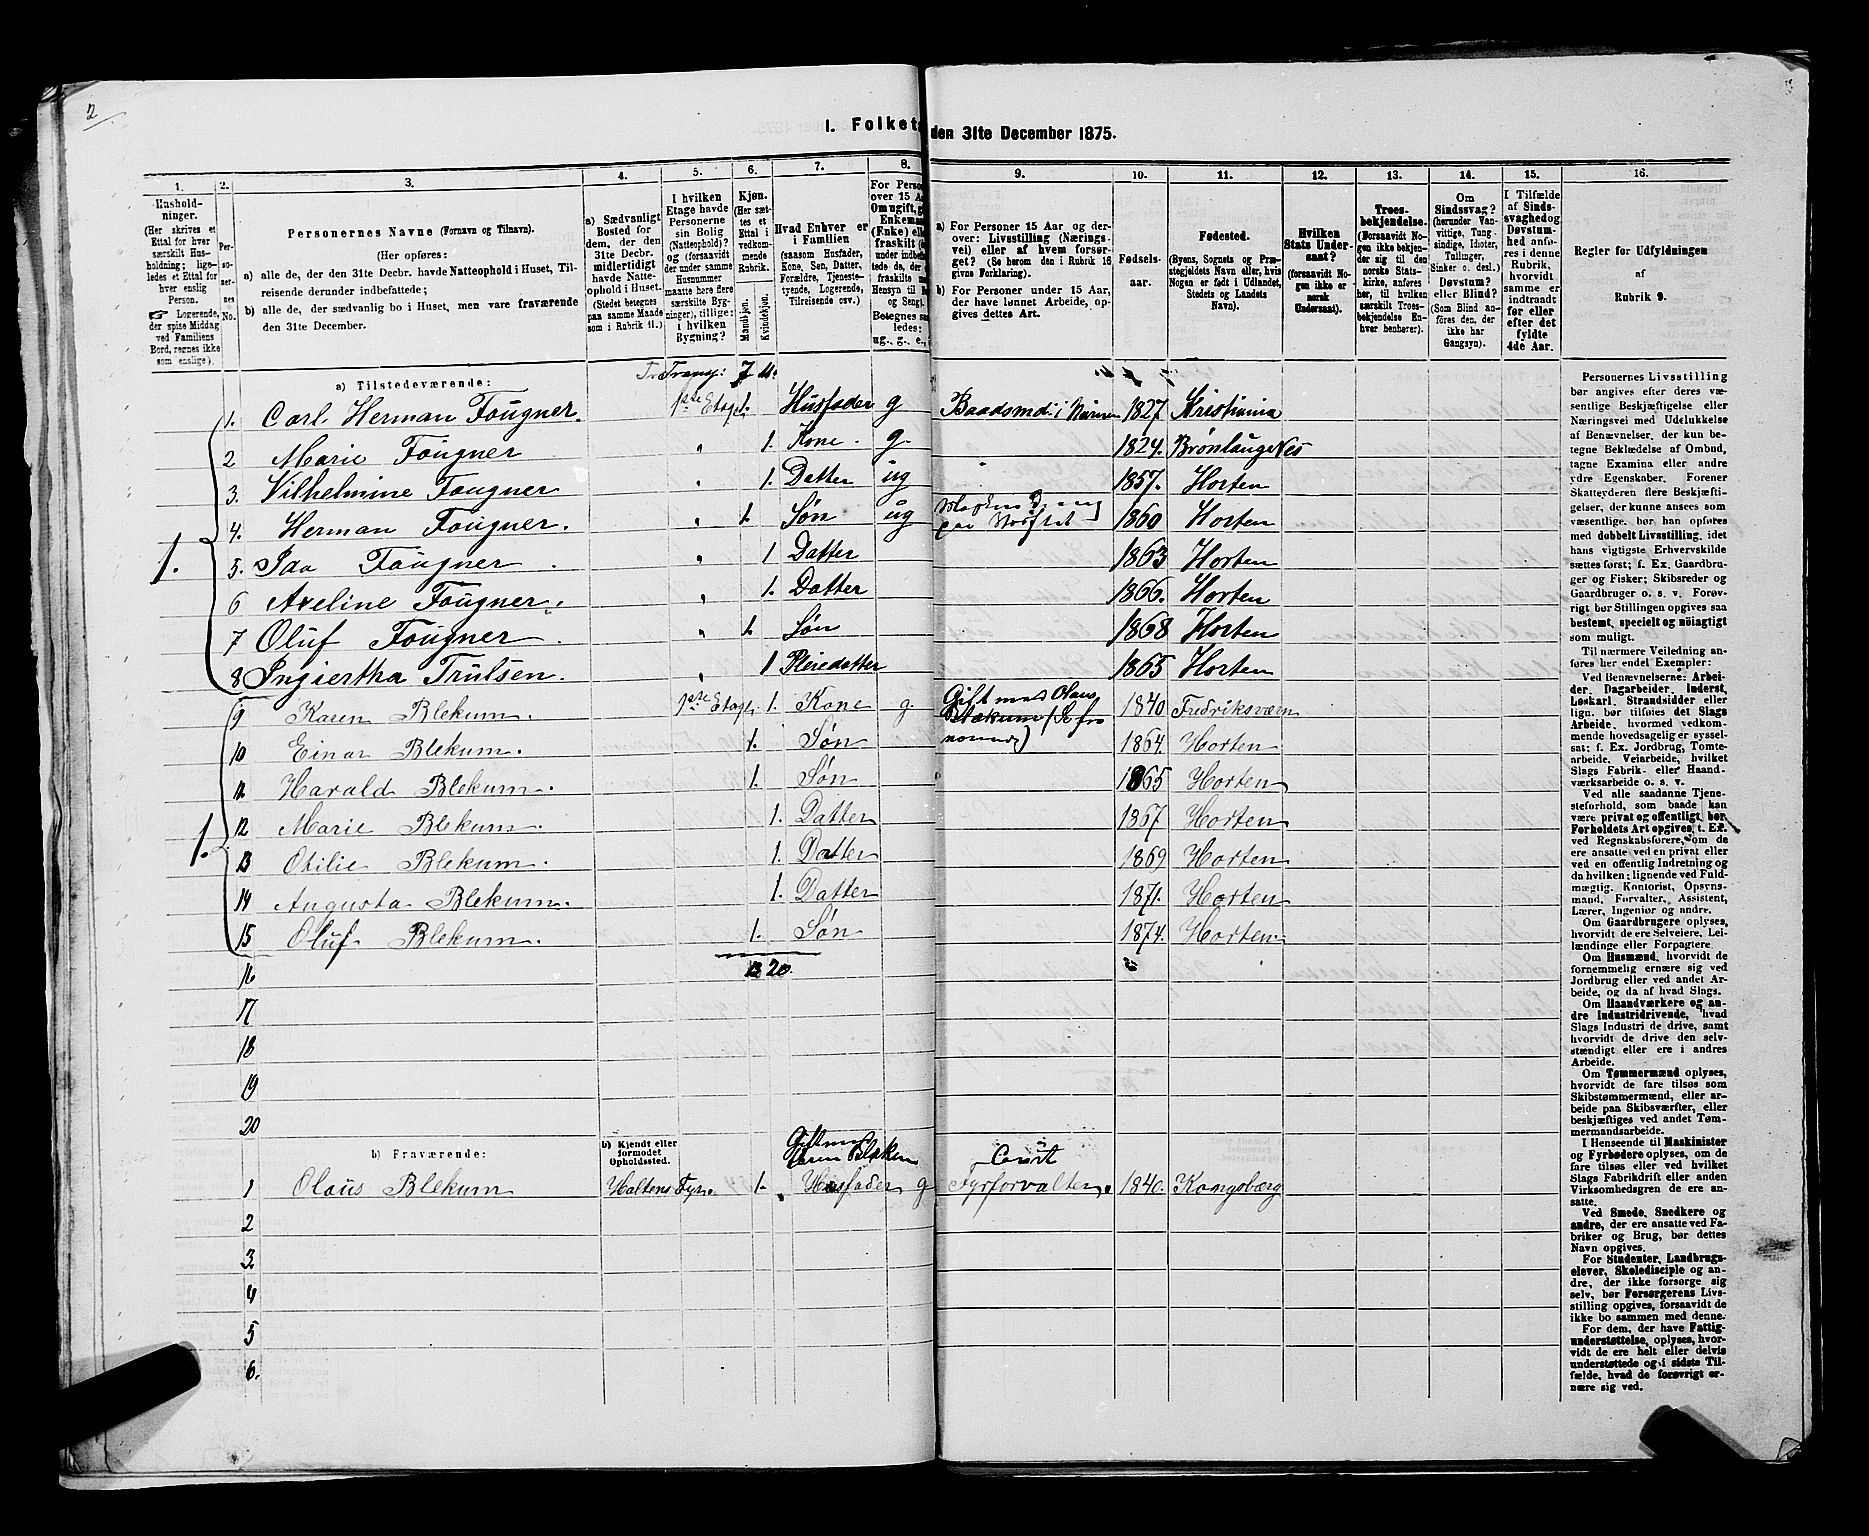 2
I. Folket den 31te December 1875.
1. 2. 3. 4. 5. 6. 7. 8. 9. 10. 11. 12. 13. 14. 15. 16.
Hushold-
ninger.
(Her skrives et
Ettal for hver
særskilt Hus-
holdning; lige-
ledes et Ettal for
hver enslig
Person.
☞ Logerende,
der spise Middag
ved Familiens
Bord, regnes ikke
som enslige).
Per-
so-
ner-
nes
No.
Personernes Navne (Fornavn og Tilnavn).
(Her opføres:
a) alle de, der den 31te Decbr. havde Natteophold i Huset, Til-
reisende derunder indbefattede;
b) alle de, der sædvanlig bo i Huset, men vare fraværende
den 31te December.
a) Sædvanligt
Bosted for
dem, der den
31te Decbr.
midlertidigt
havde Natte-
ophold i Huset.
(Stedet betegnes
paa samme Maade
som i Rubrik 11.)
I hvilken
Etage havde
Personerne
sin Bolig
(Natteophold)?
og (forsaavidt
der under samme
Husnummer
maatte høre flere
særskilte Byg-
ninger), tillige:
i hvilken
Bygning?
Kjøn.
(Her sæt-
tes et
Ettal i
vedkom-
mende
Rubrik.
Mandkjøn.
Kvindekjøn.
Hvad Enhver er
i Familien
(saasom Husfader,
Kone, Søn, Datter,
Forældre, Tjeneste-
tyende, Logerende,
Tilreisende osv.)
For Perso
over 15 A
Om ugift, g
Enkema
(Enke) elle
fraskilt (
under indbefat-
tede de, der
fraskilte
Hensyn til B
og Seng).
Betegnes s
ledes:
ug., g., e.,
a) For Personer 15 Aar og der-
over: Livsstilling (Nærings-
vei) eller af hvem forsør-
get? (Se herom den i Rubrik 16
givne Forklaring).
b) For Personer under 15 Aar,
der have lønnet Arbeide, op-
gives dettes Art.
Fødsels-
aar.
Fødested.
(Byens, Sognets og Præ-
stegjeldets Navn eller, hvis
Nogen er født i Udlandet,
Stedets og Landets
Navn).
Hvilken
Stats Under-
saat?
(forsaavidt No-
gen ikke er
norsk
Undersaat).
Troes-
bekjendelse.
(Forsaavidt No-
gen ikke bekjen-
der sig til den
norske Stats-
kirke, anføres
her, til hvilken
særskilt Troes-
bekjendelse En-
hver henhører).
Om
Sindssvag?
(herunder Van-
vittige, Tung-
sindige, Idioter,
Tullinger,
Sinker o. desl.)
Døvstum?
eller Blind?
(Som Blind an-
føres den, der
ikke har
Gangsyn).
I Tilfælde
af Sinds-
svaghed og
Døvstum-
hed anfø-
res i denne
Rubrik,
hvorvidt
samme er
indtraadt
før eller
efter det
fyldte
4de Aar.
Regler for Udfyldningen
af
Rubrik 9.
a) Tilstedeværende: Transp: 7 11.
1. Carl Herman Fougner. 1ste Etage 1. Husfader g Baadsmd. i Marinen 1827 Kristiania
2 Marie Fougner " 1. Kone. g. 1824. Brønlaugsnes
3. Vilhelmine Fougner " 1. Datter ug 1857. Horten
4. Herman Fougner. " 1. Søn ug 1860 Horten
1. 5. Ida Fougner " 1 Datter 1863 Horten
6 Aveline Fougner. " 1. Datter 1866. Horten
7 Oluf Fougner " 1. Søn 1868 Horten
8 Ingiertha Trulsen. " 1 Pleiedatter 1865 Horten
9 Karen Blekum. 1ste Etage. 1. Kone g. Gift med Olaus Blækum 1840 Fredriksværn
10 Einar Blekum. 1. Søn 1864. Horten
11 Harald Blekum. 1. Søn 1865 Horten
1. 12 Marie Blekum. 1. Datter 1867 Horten
13 Otilie Blekum. 1. Datter 1869 Horten
14 Augusta Blekum. 1. Datter 1871. Horten
15 Oluf Blekum. 1. Søn 1874. Horten
16 13 20.
17
18
19
20
b) Fraværende: b) Kjendt eller
formodet
Opholdssted. Gift med
Karen Blekum Const
1 Olaus Blekum Haltens Fyr. 1. Husfader g Fyrforvalter. 1840. Kongsberg
2
3.
4
5
6.
Personernes Livsstilling
bør angives efter deres væ-
sentlige Beskjæftigelse eller
Næringsvei med Udelukkelse
af Benævnelser, der kun be-
tegne Beklædelse af Ombud,
tagne Examina eller andre
ydre Egenskaber. Forener
Skatteyderen flere Beskjæfti-
gelser, der kunne ansees som
væsentlige, bør han opføres
med dobbelt Livsstilling, idet
hans vigtigste Erhvervskilde
sættes først; f. Ex. Gaardbru-
ger og Fisker; Skibsreder og
Gaardbruger o. s. v. Forøv-
rigt bør Stillingen opgives saa
bestemt, specielt og nöiagtigt
som muligt.
Til nærmere Veiledning an-
føres her endel Exempler:
Ved Benævnelserne: Arbei-
der, Dagarbeider, Inderst,
Løskarl, Strandsidder eller
lign. bør tilføies det Slags
Arbeide, hvormed vedkom-
mende hovedsagelig er syssel-
sat; f. Ex. Jordbrug, Tomte-
arbeide, Veiarbeide, hvilket
Slags Fabrik- eller Haand-
værksarbeide o. s. v.
Ved alle saadanne Tjene-
steforhold, som baade kan
være privat og offentligt, bør
Forholdets Art opgives, t. Ex.
ved Regnskabsførere, om de
ere ansatte ved en privat eller
ved en offentlig Indretning og
da hvilken; lignende ved Fuld-
mægtig, Kontorist, Opsyns-
mand, Forvalter, Assistent,
Lærer, Ingeniør og andre.
Om Gaardbrugere oplyses,
hvorvidt de ere Selveiere, Lei-
lændinge eller Forpagtere
Om Husmænd, hvorvidt de
fornemmelig ernære sig ved
Jordbrug eller ved andet Ar-
beide, og da af hvad Slags.
Om Haandværkere og an-
dre Industridrivende, hvad
Slags Industri de drive, samt
hvorvidt de drive den selv-
stændigt eller ere i andres
Arbeide.
Om Tømmermænd oplyses,
hvorvidt de fare tilsøs som
Skibstømmermænd, eller ar-
beide paa Skibsværfter, eller
beskjæftiges ved andet Tøm-
mermandsarbeide.
I Henseende til Maskinister
og Fyrbødere oplyses, om de
fare tilsøs eller ved hvilket
Slags Fabrikdrift eller anden
Virksomhedsgren de ere an-
satte.
Ved Smede, Snedkere og
andre, der ere ansatte ved Fa-
briker og Brug, bør dettes
Navn opgives.
For Studenter, Landbrugs-
elever, Skoledisciple og an-
dre, der ikke forsørge sig
selv, bør Forsørgerens Livs-
stilling opgives, forsaavidt de
ikke bo sammen med denne.
For dem, der have Fattig-
understøttelse, oplyses, hvor-
vidt de ere helt eller delvis
understøttede og i sidste Til-
fælde, hvad de forøvrigt er-
nære sig ved.